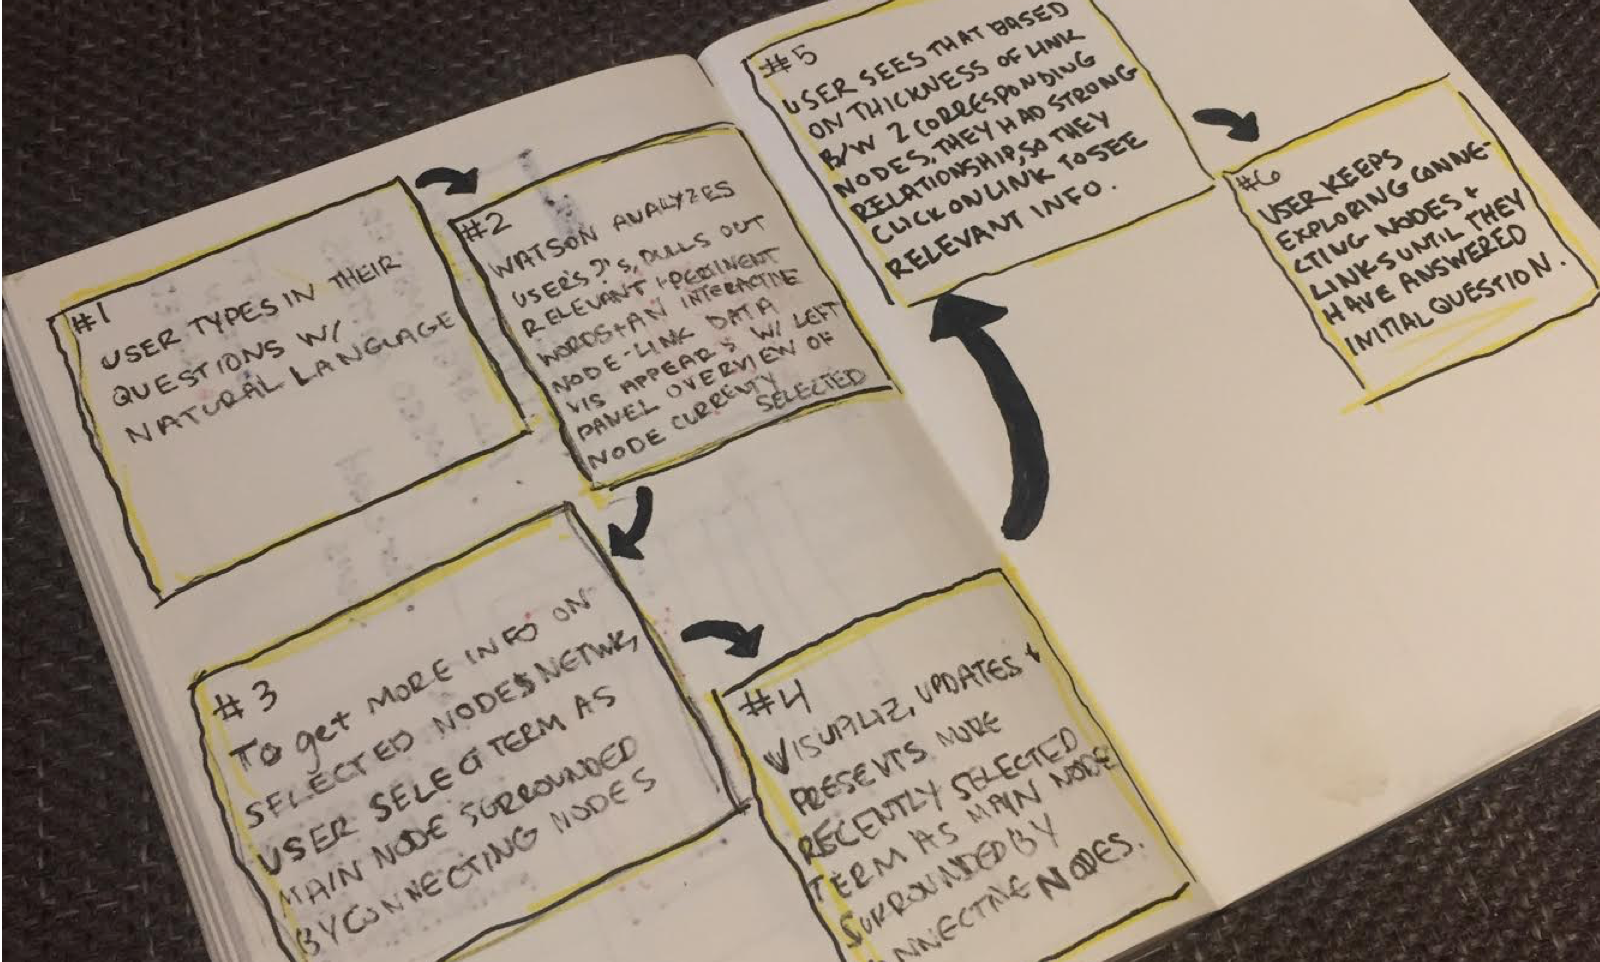 #1
USER TYPES IN THEIR
QUESTIONS W/
NATURAL LANGUAGE
#2
WATSON ANALYZES
USER'S ?'s, PULLS OUT
RELEVANT + PERTINENT
WORDS + AN INTERACTIVE
NODE-LINK DATA
VIS APPEARS W/ LEFT
PANEL OVERVIEW OF
NODE CURRENTLY
SELECTED
#3
TO get MORE INFO ON
SELECTED NODES NETWK,
USER SELECT TERM AS
MAIN NODE SURROUNDED
BY CONNECTING NODES
#4
VISUALIZ, UPDATES +
PRESENTS MORE
RECENTLY SELECTED
TERM AS MAIN NODE
SURROUNDED BY
CONNECTING NODES.
#5
USER SEES THAT BASED
ON THICKNESS OF LINK
B/W 2 CORRESPONDING
NODES, THEY HAD STRONG
RELATIONSHIP, SO THEY
CLICK ON LINK TO SEE
RELEVANT INFO.
#6
USER KEEPS
EXPLORING CONNE-
CTING NODES +
LINKS UNTIL THEY
HAVE ANSWERED
INITIAL QUESTION.